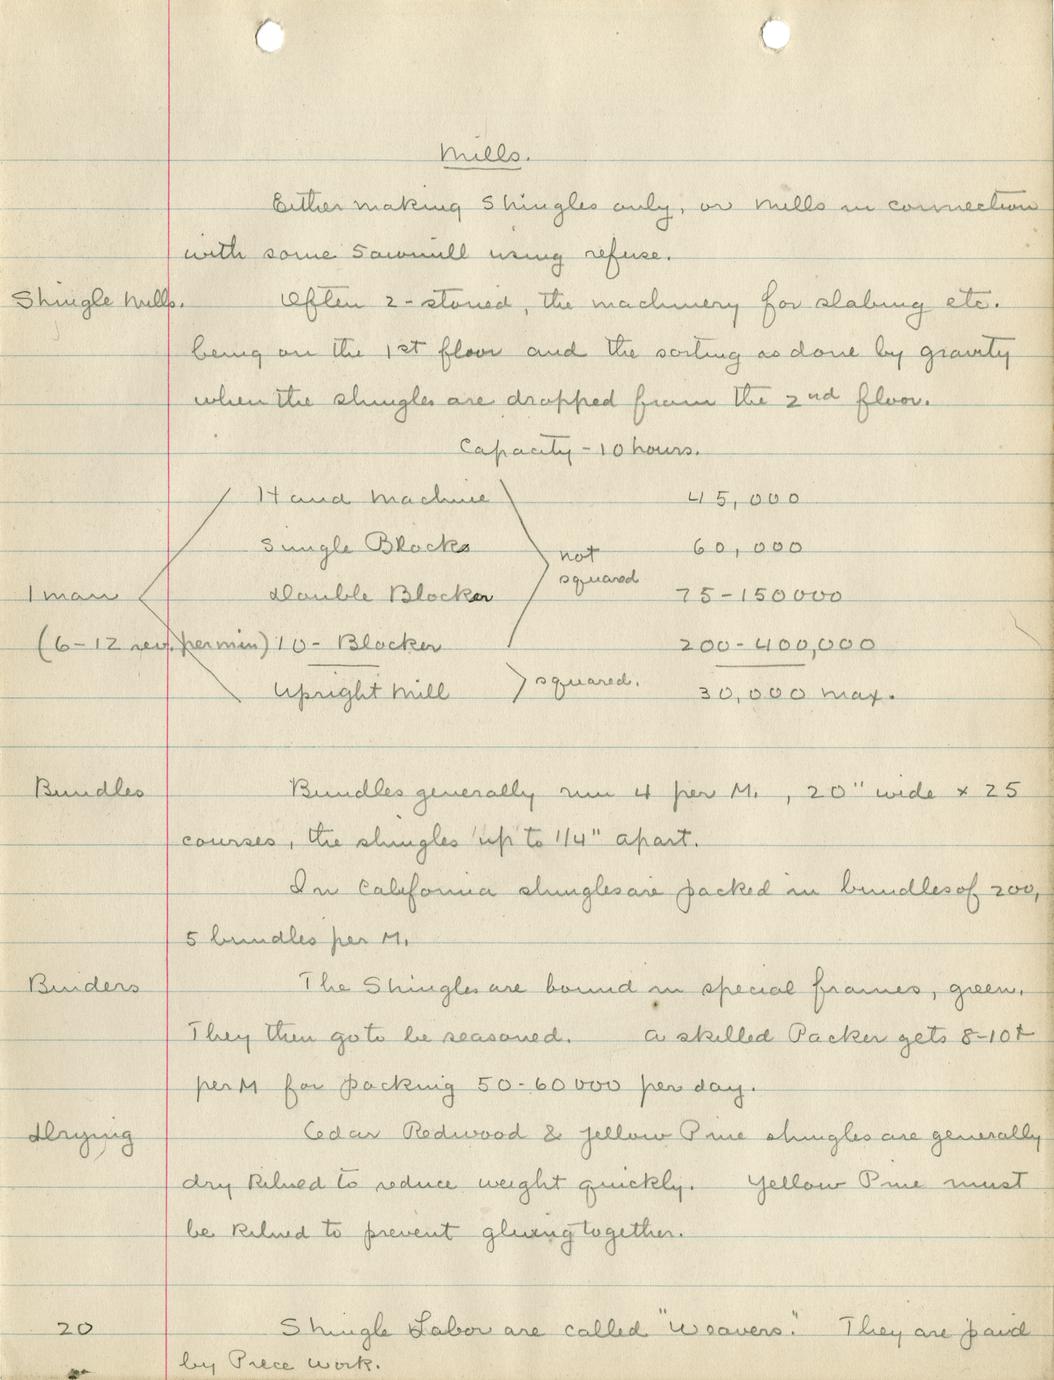 Mills.
Either making Shingles only, or Mills in connection
with some Sawmill using refuse.
Shingle Mills. Often 2-storied, the machinery for slabing etc.
being on the 1st floor and the sorting as done by gravity
when the shingles are dropped from the 2nd floor.
Capacity - 10 hours.
Hand Machine 45,000
Single Blocks 60,000
not
squared
1 man Double Blocker 75-150000
(6-12 rev. per min) 10-Blocker 200-400,000
Upright Mill squared. 30,000 max.
Bundles Bundles generally run 4 per M. , 20" wide x 25
courses, the shingles up to 1/4" apart.
In California shingles are packed in bundles of 200,
5 bundles per M.
Binders The Shingles are bound in special frames, green.
They then go to be seasoned. A skilled Packer gets 8-10¢
per M for packing 50-60000 per day.
Drying Cedar Redwood & Yellow Pine shingles are generally
dry kilned to reduce weight quickly. Yellow Pine must
be kilned to prevent glueing together.
20 Shingle Labor are called "Weavers." They are paid
by Piece Work.